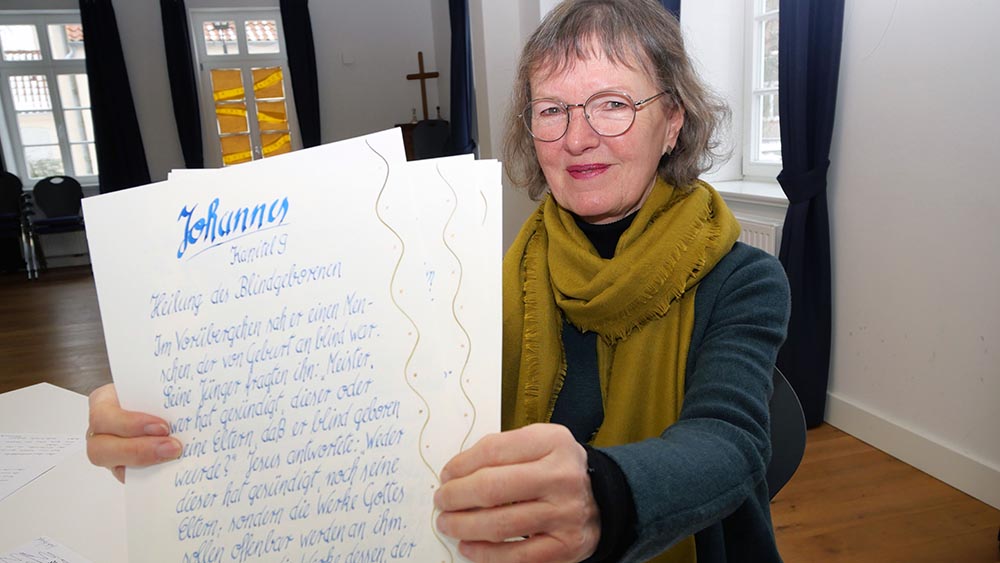 Johannes
Kapitel 9
Heilung des Blindgeborenen
Im Vorübergehen sah er einen Men-
schen, der von Geburt an blind war.
Seine Jünger fragten ihn: Meister,
wer hat gesündigt, dieser oder
seine Eltern, daß er blind geboren
wurde?" Jesus antwortete: Weder
dieser hat gesündigt, noch seine
Eltern; sondern die Werke Gottes
sollen offenbar werden an ihm.
Werke dessen, der